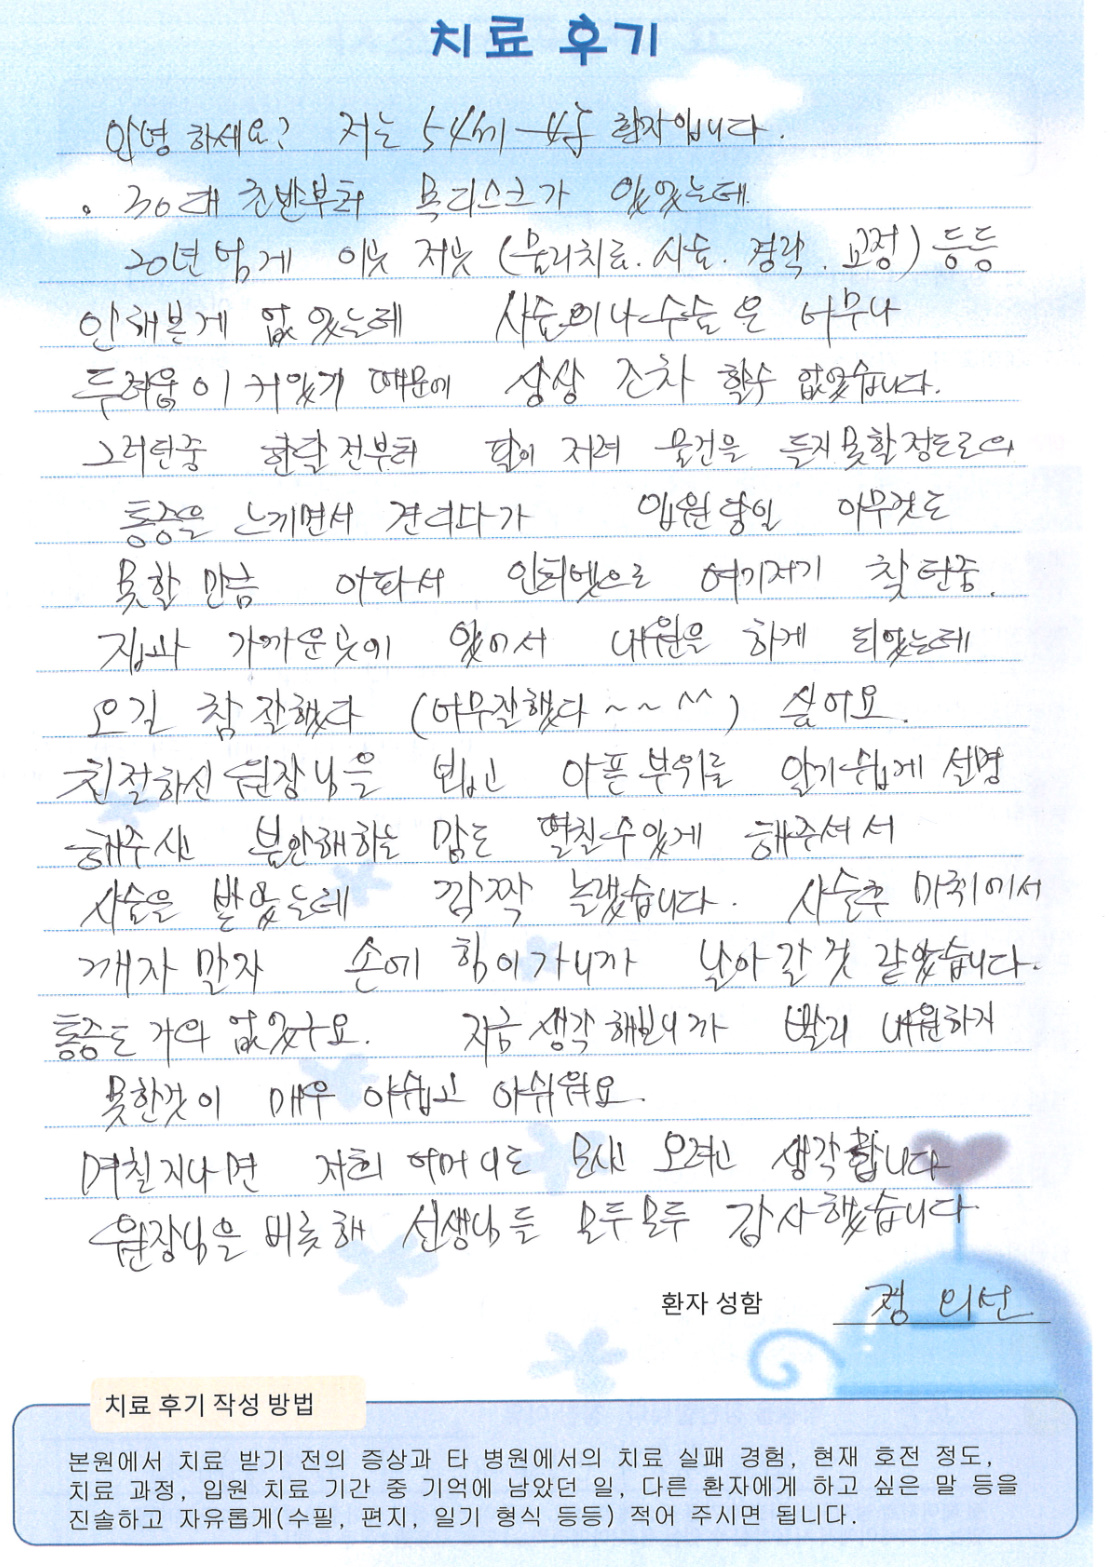 치료 후기
안녕 하세요? 저는 54세 환자입니다.
. 30대 초반부터 목디스크가 있었는데
20년 넘게 이놋 저놋 (물리치료. 시술. 경락. 교정) 등등
안해본게 없었는데 시술이나 수술은 너무나
두려움이 커있기 때문에 상상 조차 할수 없었습니다.
그러던중 한달전부터 팔이 저려 물건을 들지못할정도로의
통증을 느끼면서 견디다가 입원당일 아무것도
못할 만큼 아파서 인터넷으로 여기저기 찾던중.
집과 가까운곳이 있어서 내원을 하게 되었는데
오길 참 잘했다 (너무잘했다 ~ ~ ^^) 싶어요.
친절하신 원장님을 뵙고 아픈부위를 알기쉽게 설명
해주시고 불안해하는 맘도 떨칠수있게 해주셔서
시술을 받았는데 깜짝 놀랬습니다. 시술후 마취에서
깨자 말자 손에 힘이가니까 날아갈것 같았습니다.
통증도 거의 없었구요. 지금 생각해보니까 빨리 내원하지
못한것이 매우 아쉽고 아쉬워요.
며칠지나면 저희 어머니도 모시고 오려고 생각합니다
원장님을 비롯해 선생님들 모두모두 감사했습니다
환자 성함 정 의선
치료 후기 작성 방법
본원에서 치료 받기 전의 증상과 타 병원에서의 치료 실패 경험, 현재 호전 정도,
치료 과정, 입원 치료 기간 중 기억에 남았던 일, 다른 환자에게 하고 싶은 말 등을
진솔하고 자유롭게(수필, 편지, 일기 형식 등등) 적어 주시면 됩니다.